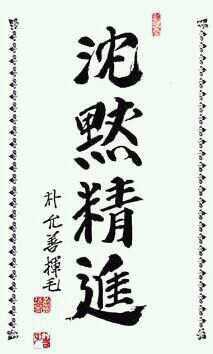 沈默精進
朴允善揮毛